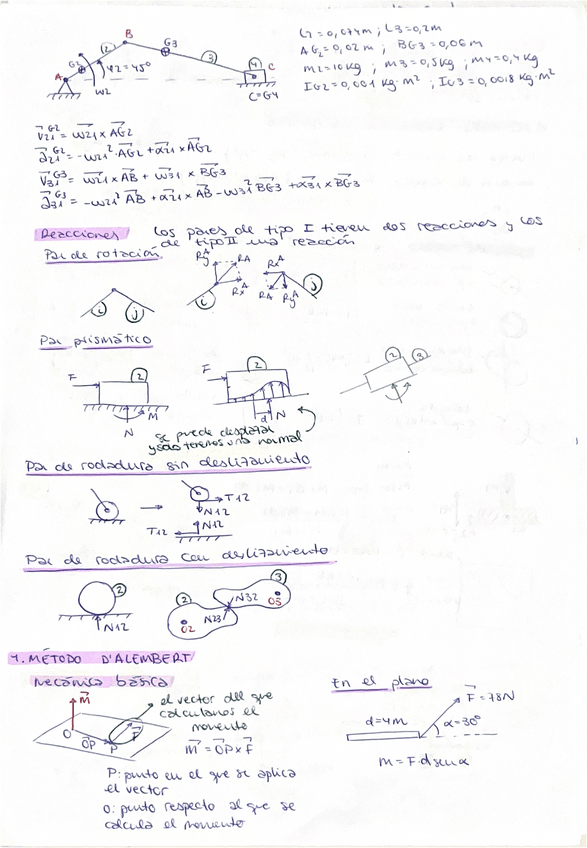 L2 = 0,074m ; L3 = 0,2m
AG2 = 0,02m ; BG3 = 0,06m
m2 = 10kg ; m3 = 0,5kg ; m4 = 0,4kg
IG2 = 0,001 kg·m² ; IG3 = 0,0018 kg·m²
B
G3
2
G2
φ2=45°
3
4
C
A
ω2
C=G4
v21^G2 = ω21 x AG2
a21^G2 = -ω21² · AG2 + α21 x AG2
v31^G3 = ω21 x AB + ω31 x BG3
a31^G3 = -ω21² AB + α21 x AB - ω31² BG3 + α31 x BG3
Reacciones Los pares de tipo I tienen dos reacciones y los
de tipo II una reacción
Par de rotación
Ry^A RA Rx^A
Rx^A RA Ry^A
i j i j
Par prismático
F 2 M N
F 2 d N
2 3
se puede desplazar
y solo tenemos una normal
Par de rodadura sin deslizamiento
T12
N12
N12
T12
Par de rodadura con deslizamiento
2
N12
2
O2
N23
N32
3
O3
1. MÉTODO D'ALEMBERT
Mecánica básica
M
O
OP
P
F
el vector del que
calculamos el
momento
M = OP x F
P: punto en el que se aplica
el vector
O: punto respecto al que se
calcula el momento
En el plano
F = 78N
d=4m
α=30°
m = F·d senα